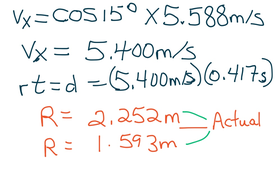 Vx = COS 15° × 5.588 m/s
Vx = 5.400 m/s
rt = d = (5.400 m/s)(0.417s)
R = 2.252m
Actual
R = 1.593m